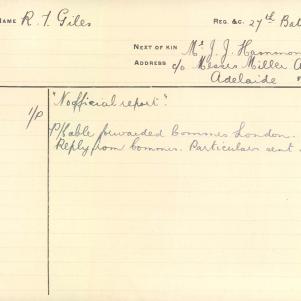 NAME R. T. Giles REG. &C. 27th Bat
NEXT OF KIN Mr J. J. Hammon
ADDRESS c/o Messrs Miller A
Adelaide F
"No official report".
1/P P/Cable forwarded Commrs London.
Reply from Commrs. Particulars sent